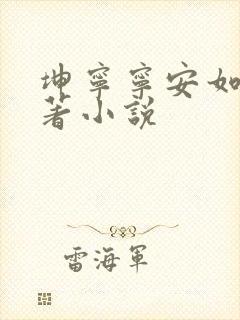 坤寧寧安如
著小説
雷海軍